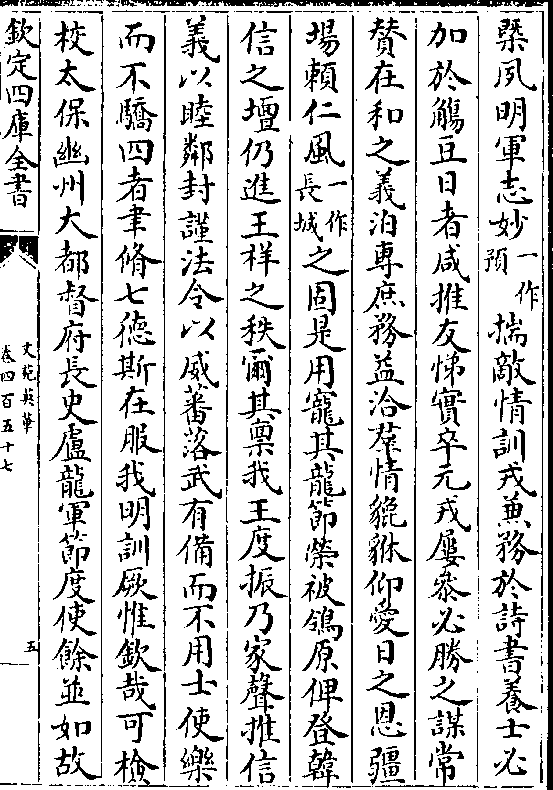 槩夙明軍志妙一作預揣敵情訓戎兼務於詩書養士必
加於觴豆日者咸推友悌實卒元戎屢叅必勝之謀常
賛在和之義洎專庶務益洽羣情貔貅仰愛日之恩疆
場頼仁風一作長城之固是用寵其龍節榮被鴒原俾登韓
信之壇仍進王祥之秩爾其禀我王度振乃家聲推信
義以睦鄰封謹法令以威蕃落武有備而不用士使樂
而不驕四者聿脩七德斯在服我明訓厥惟欽哉可檢
校太保幽州大都督府長史盧龍軍節度使餘並如故
欽定四庫全書
文苑英華
卷四百五十七
五